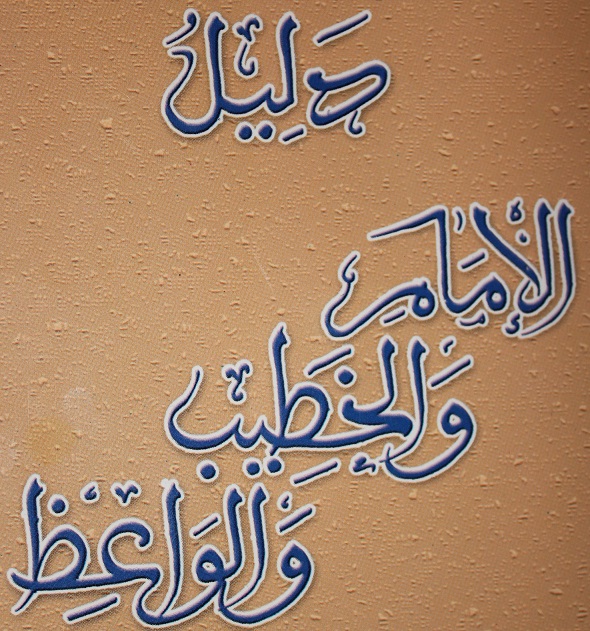 دَلِيلُ
الإِمَامِ
وَالخَطِيبِ
وَالوَاعِظِ